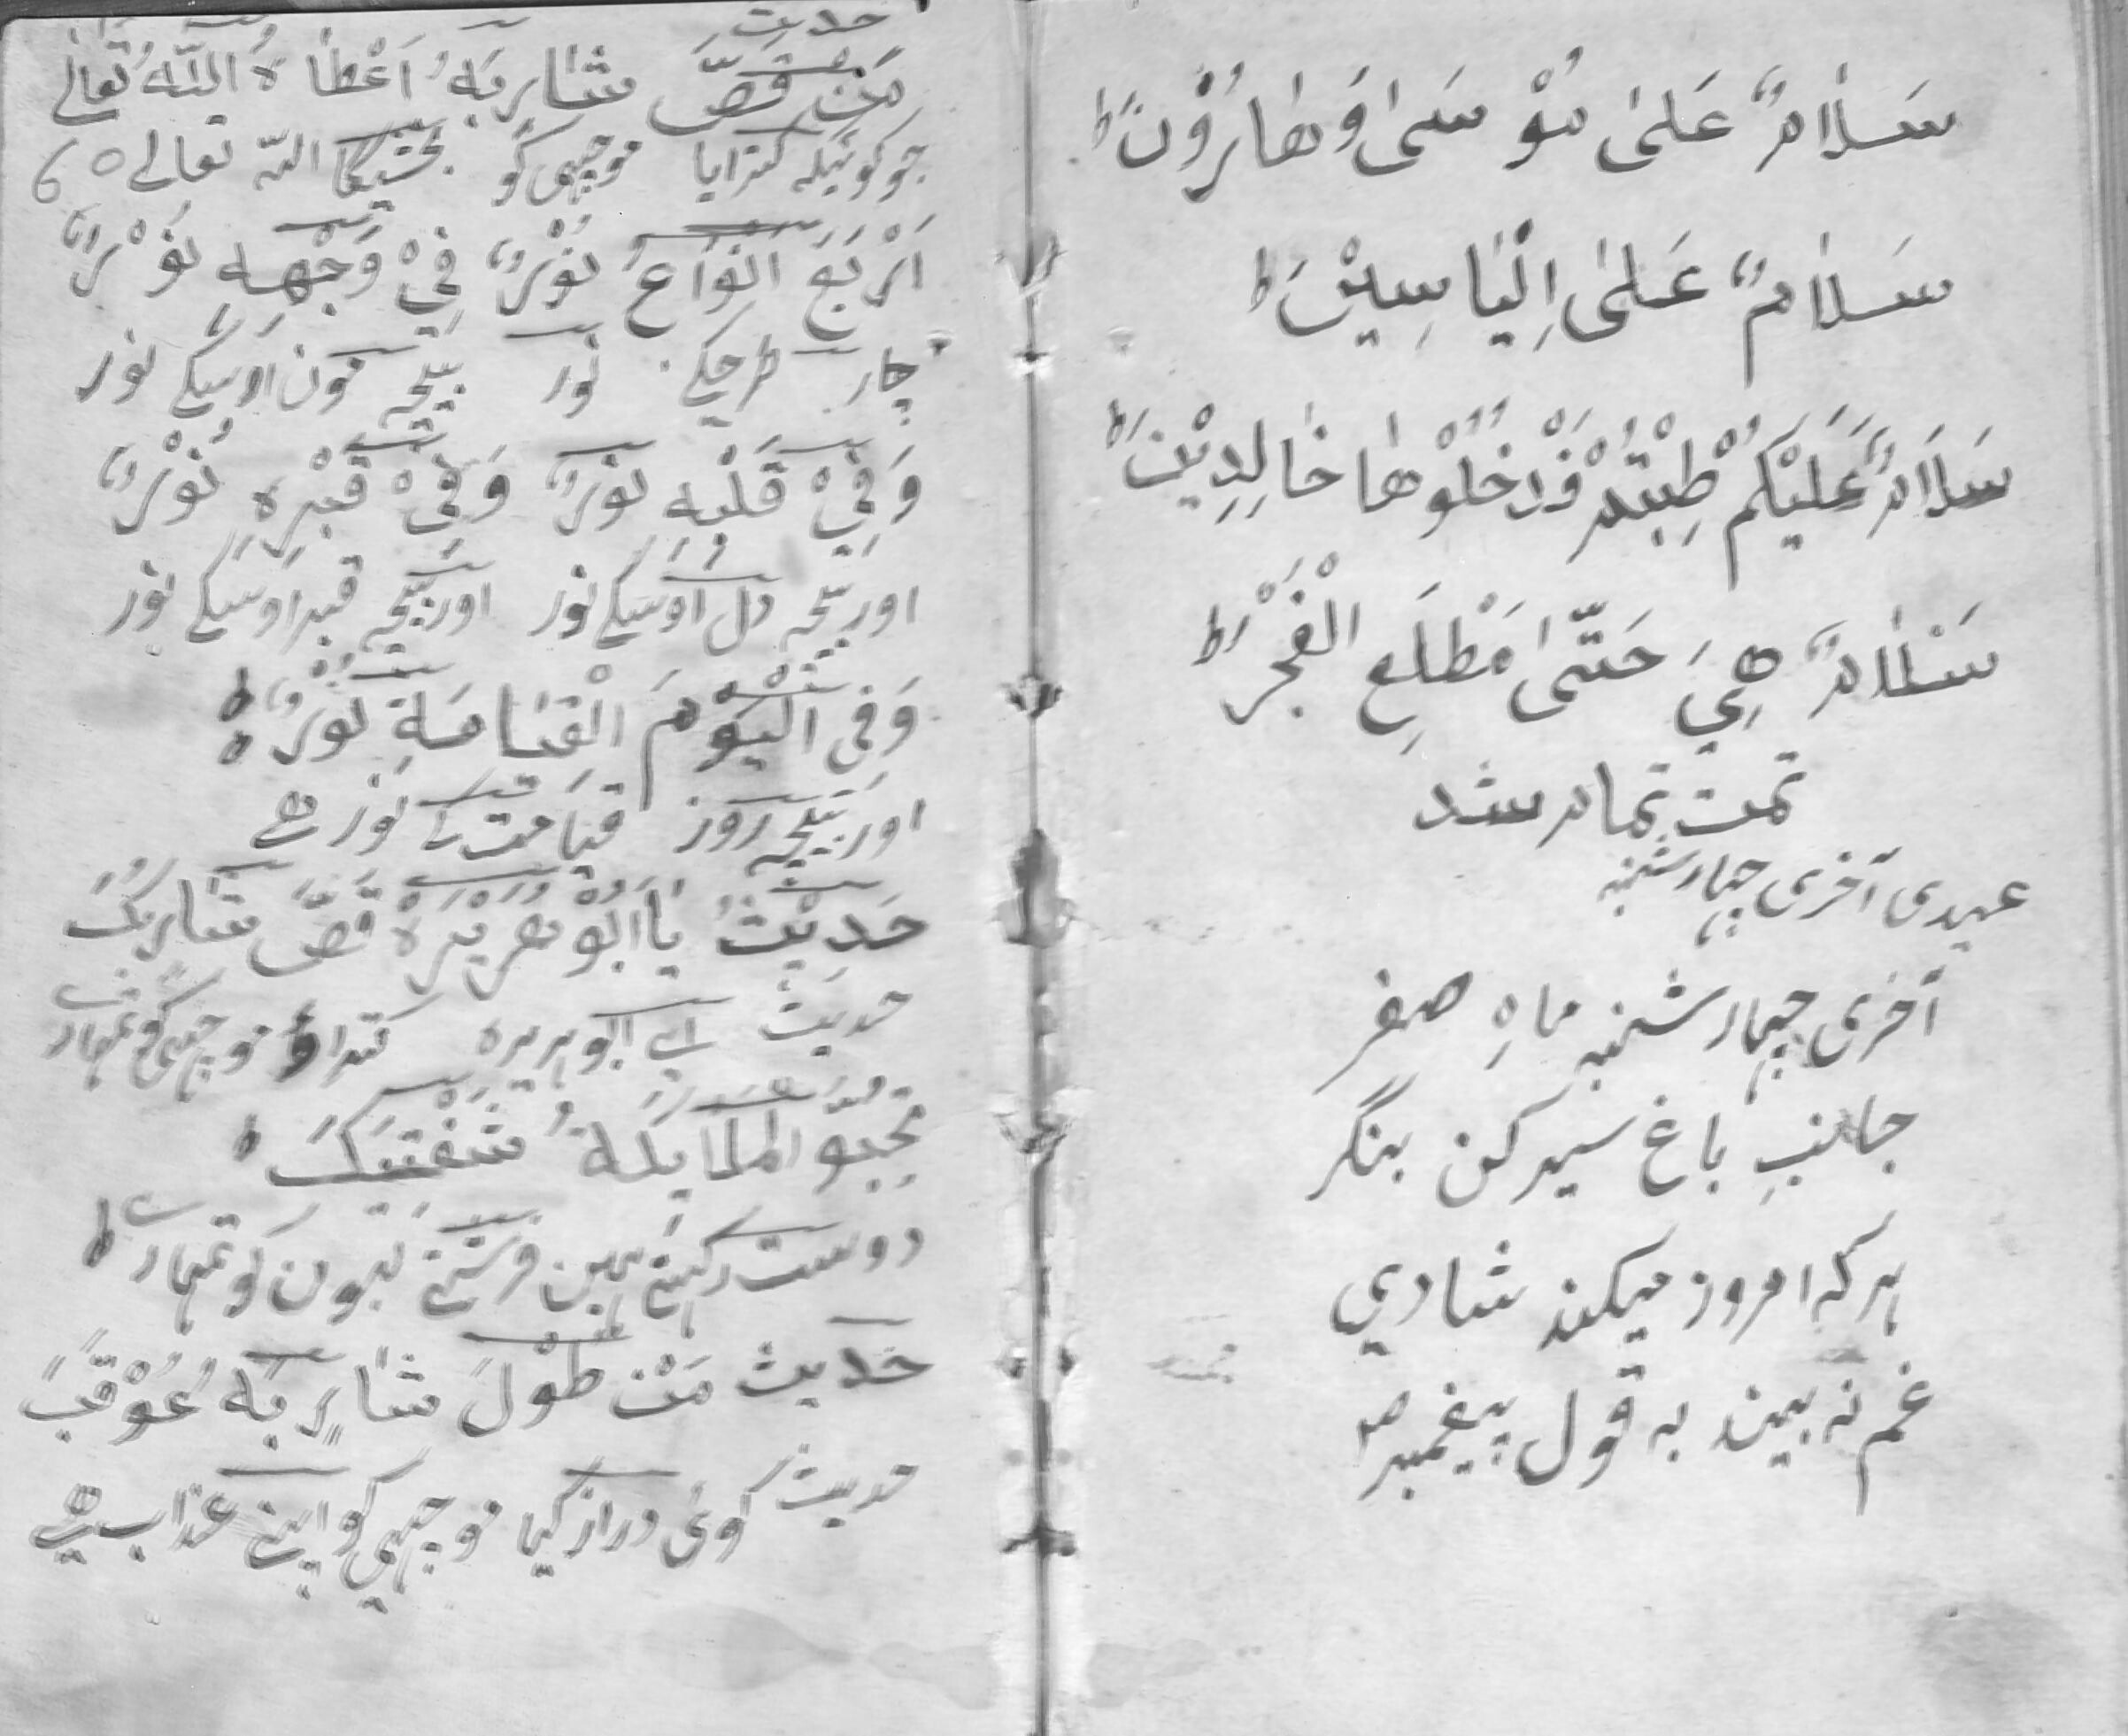 سَلَامٌ عَلىٰ مُوْسَىٰ وَهَارُوْنَ ط
سَلَامٌ عَلىٰ اِلْيَاسِيْنَ ط
سَلَامٌ عَلَيْكُمْ طِبْتُمْ فَدْخُلُوْهَا خَالِدِيْنَ ط
سَلَامٌ هِيَ حَتّىٰ مَطْلَعِ الْفَجْرِ ط
تمت تمام شد
عیدی آخری چہار شنبہ
آخری چہار شنبہ ماہِ صفر
جانبِ باغ سیر کن بنگر
ہر کہ امروز میکند شادی
غم نہ بیند بہ قول پیغمبر
حدیث
مَنْ قَصَّ شَارِبَهُ اَعْطَاهُ اللّٰهُ تَعَالٰى
جو کوئیکہ کترایا موچھی کو بخشیگا اللہ تعالے
اَرْبَعَ اَنْوَاعُ نُوْرٌ فِيْ وَجْهِهِ نُوْرٌ
چار طرحکے نور بیچہ مون اوسیکے نور
وَفِيْ قَلْبِهِ نُوْرٌ وَفِيْ قَبْرِهِ نُوْرٌ
اور بیچہ دل اوسیکے نور اور بیچہ قبر اوسیکے نور
وَفِى الْيَوْمَ الْقِيَامَةِ نُوْرٌ ط
اور بیچہ روز قیامت کے نور ھے
حَدِيْثُ يَا اَبُوْ هُرَيْرَةْ قَصَّ شَارِبَكَ
حدیث اے ابو ہریرہ کتراؤ موچھی کو تمہارے
تُحِبُّو الْمَلَايِكَةُ شَفْتَيْكَ ط
دوست رکھتے ہین فرشتے لبون کو تمہارے ط
حَدِيث مَنْ طَوْلَ شَارِبَهُ عُوْقِبَ
حدیث کوئی دراز کیا موچھی کو اپنے عذاب ہے